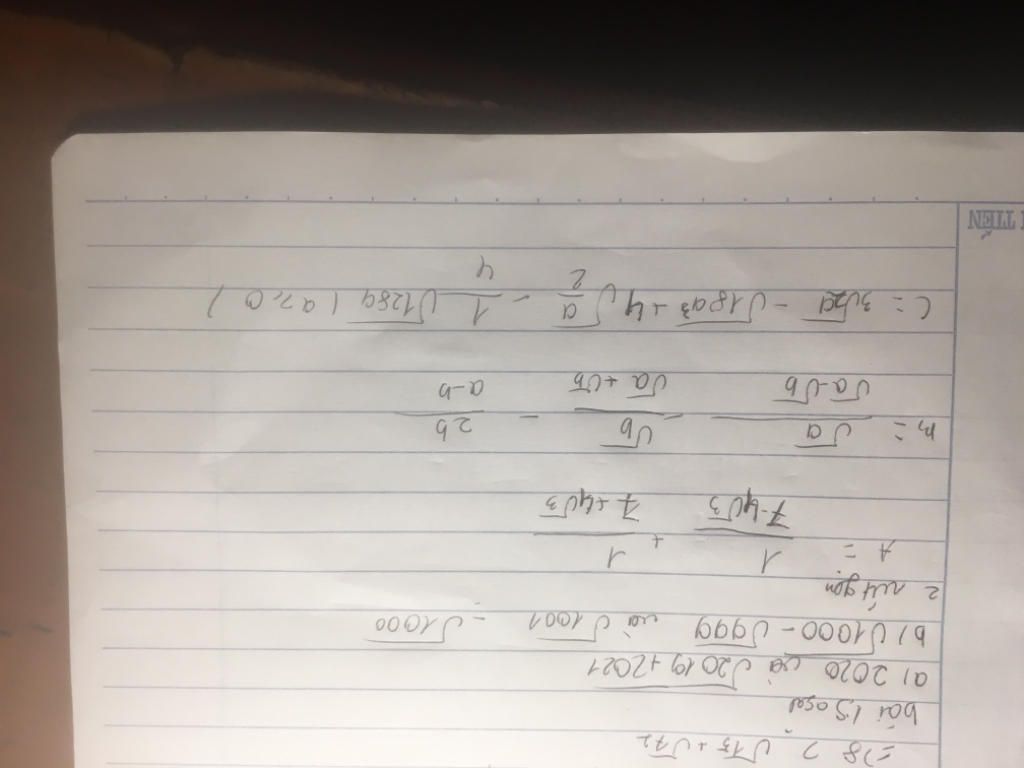 => 8 > √15 + √72
bài 1 So sá
a) 2020 và √2019+2021
b) √1000 - √999 và √1001 - √1000
2 rút gọn
A = 1/(7-4√3) + 1/(7+4√3)
B = √a/(√a-√b) - √b/(√a+√b) - 2b/(a-b)
C = 3√2a - √18a³ + 4√(a/2) - 1/4 √128a (a≥0)
TIẾN